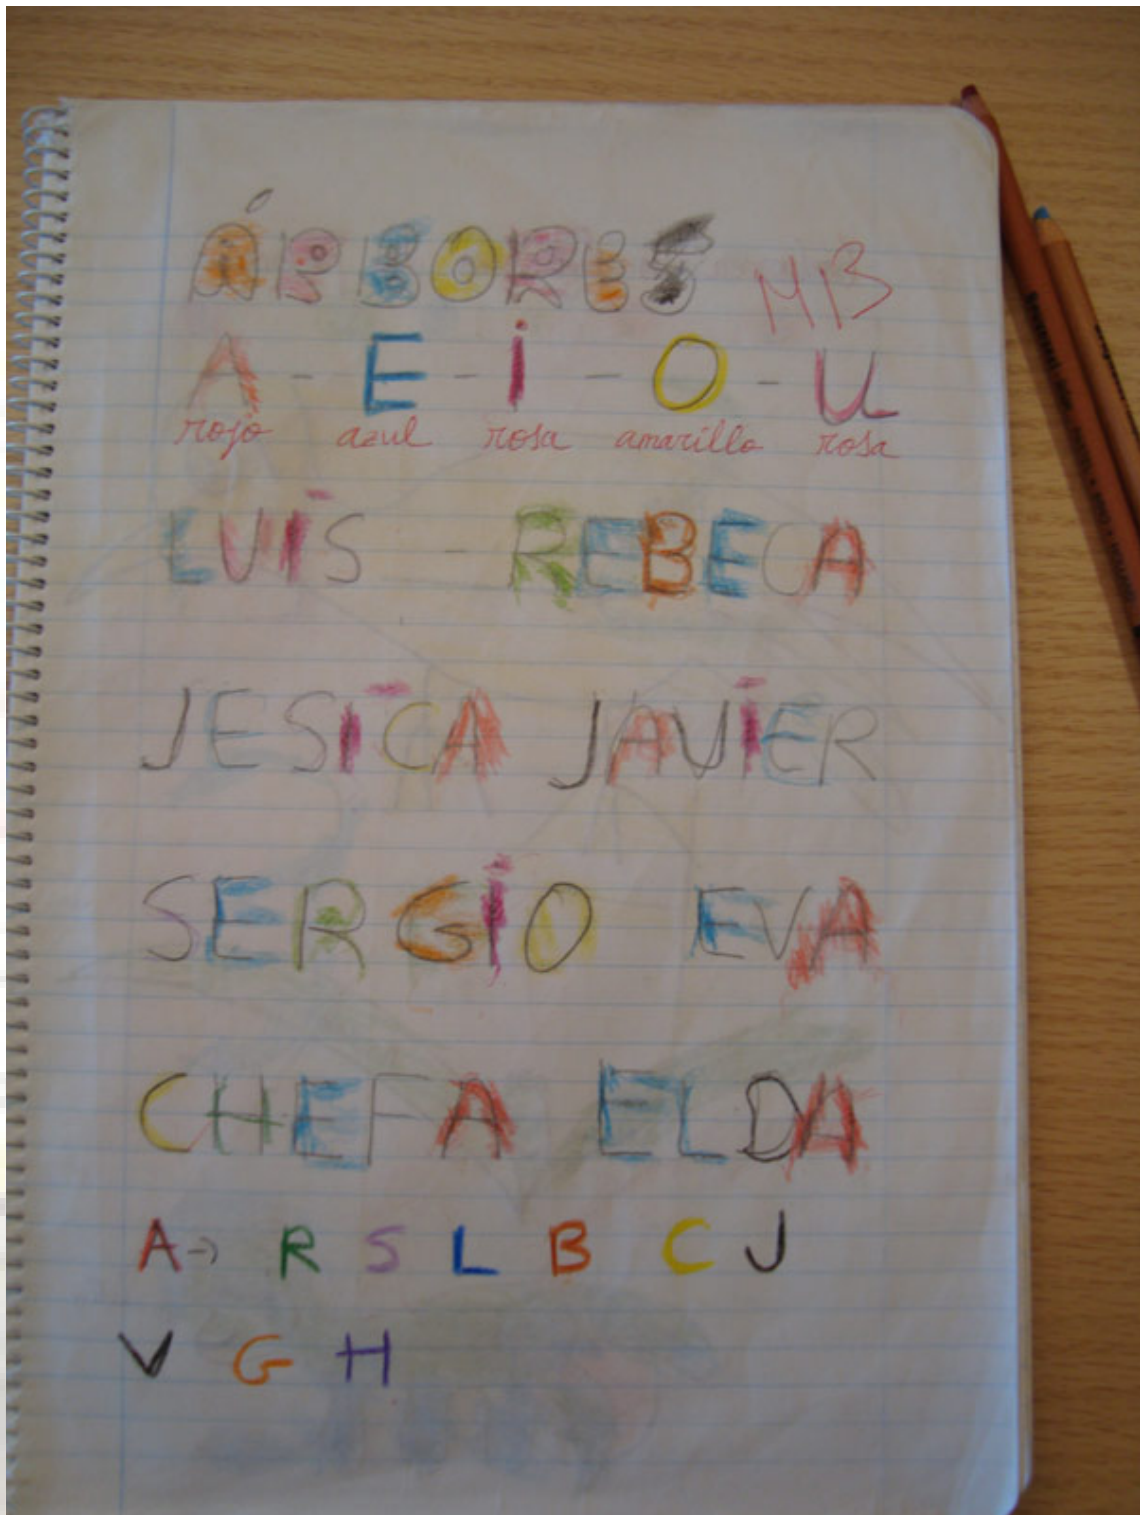 ÁRBORES MB
A - E - i - O - U
rojo azul rosa amarillo rosa
LUIS - REBECA
JESICA JAVIER
SERGIO EVA
CHEFA ELDA
A→ R S L B C J
V G H